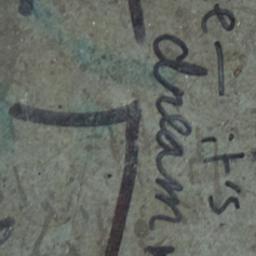 e- it's
dream